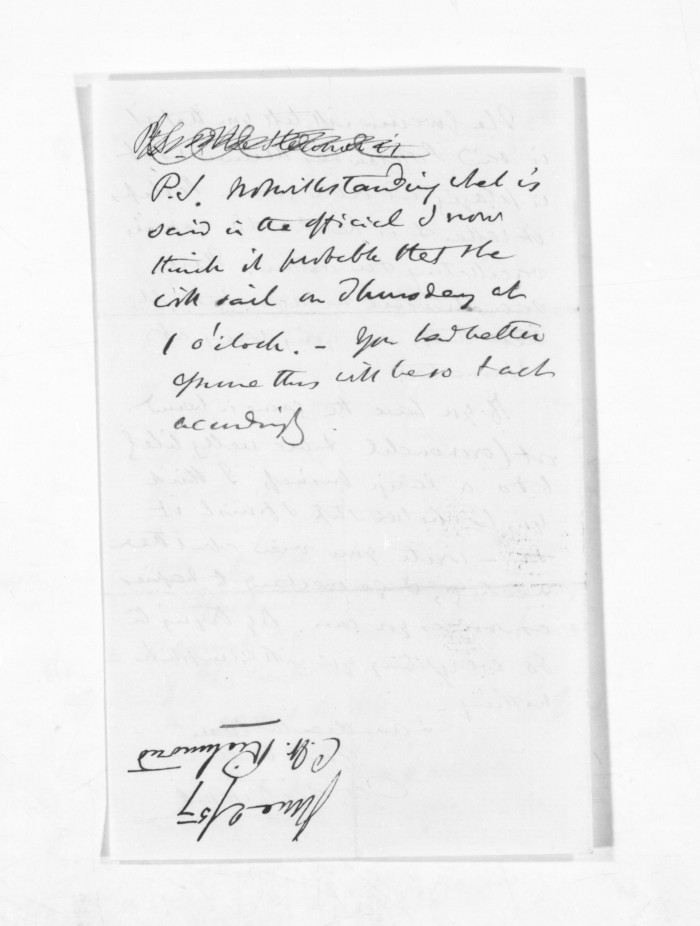 P.S. Notwithstanding what is
said in the official I now
think it probable that she
will sail on Thursday at
1 o'clock. – You had better
assume this will be so & act
accordingly.
C. W. Richmond
June 2/57